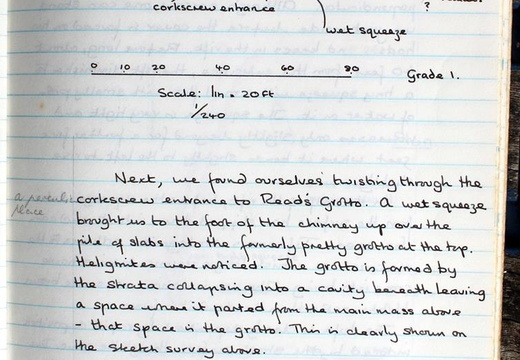 corkscrew entrance
?
wet squeeze
0 10 20 40 60 80
Grade 1.
Scale: 1in = 20ft
1/240
Next, we found ourselves twisting through the
corkscrew entrance to Read's Grotto. A wet squeeze
brought us to the foot of the chimney up over the
pile of slabs into the formerly pretty grotto at the top.
Heligmites were noticed. The grotto is formed by
the strata collapsing into a cavity beneath leaving
a space where it parted from the main mass above
- that space is the grotto. This is clearly shown on
the sketch survey above.
a
place